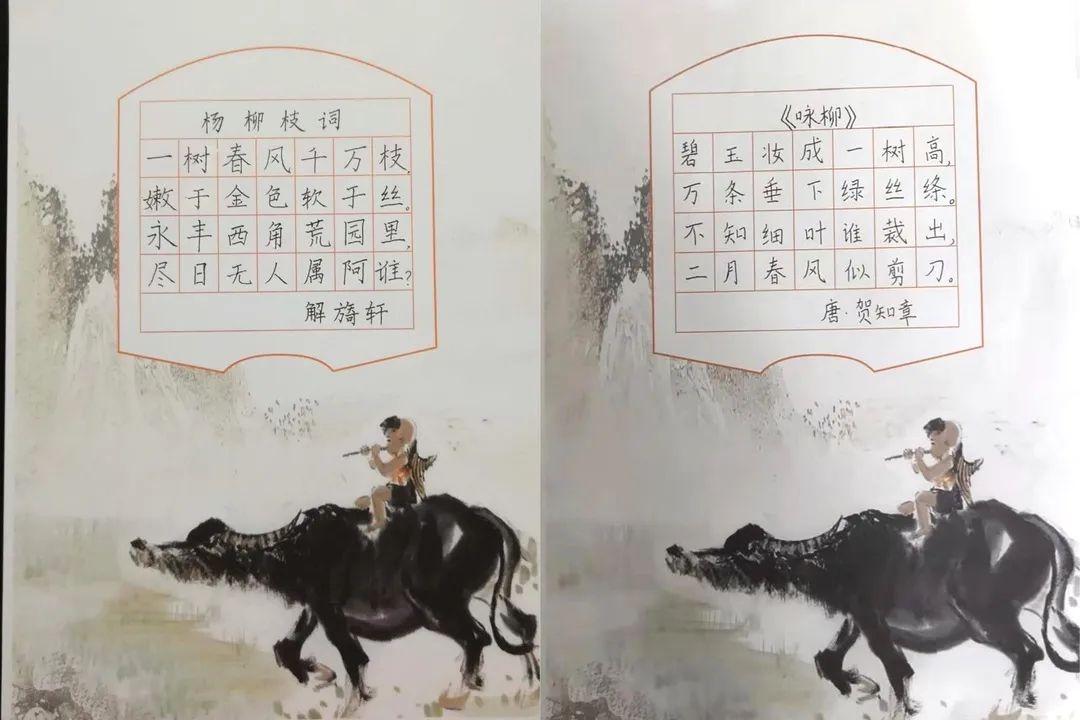 杨柳枝词
一树春风千万枝,
嫩于金色软于丝。
永丰西角荒园里,
尽日无人属阿谁?
解旖轩
《咏柳》
碧玉妆成一树高,
万条垂下绿丝绦。
不知细叶谁裁出,
二月春风似剪刀。
唐·贺知章